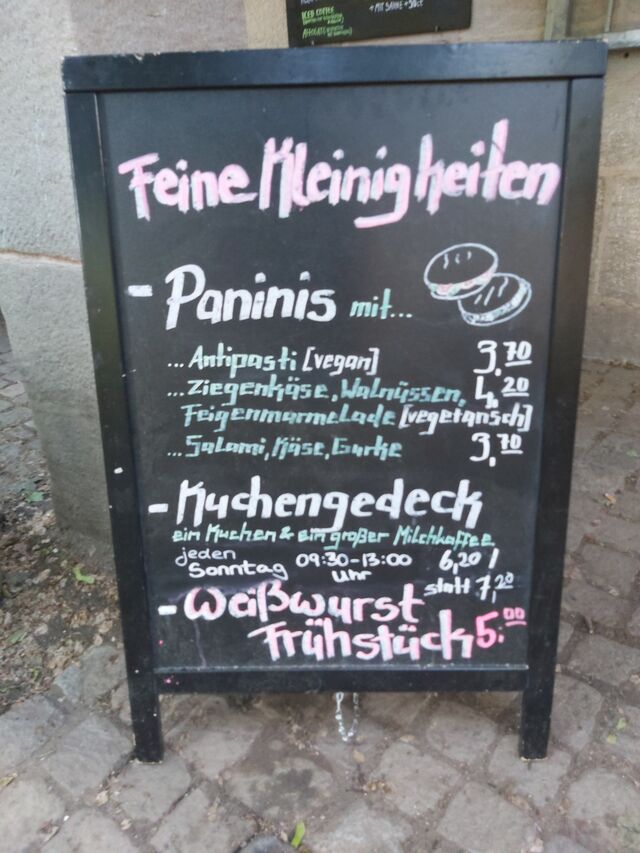 ICED COFFEE
+ MIT SAHNE + 50ct
AFFOGATO
Feine Kleinigkeiten
- Paninis mit...
...Antipasti [vegan] 3,70
...Ziegenkäse, Walnüssen, 4,20
Feigenmarmelade [vegetarisch]
...Salami, Käse, Gurke 3,70
- Kuchengedeck
ein Kuchen & ein großer Milchkaffee
jeden Sonntag 09:30-13:00 Uhr 6,20 /
statt 7,20
- Waißwurst
Frühstück 5.00